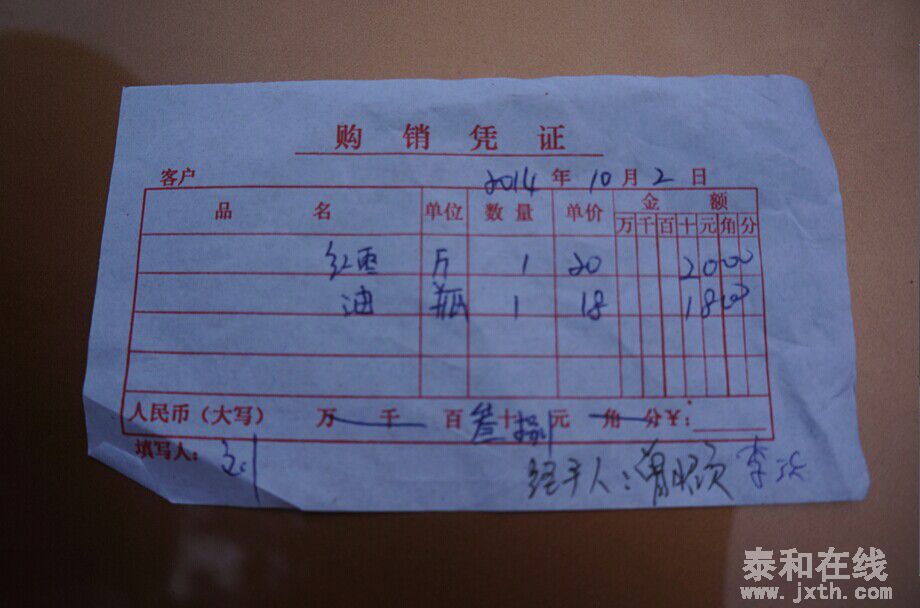 购销凭证
客户 2014年10月2日
品名 单位 数量 单价 金额
万千百十元角分
红枣 斤 1 20 2000
油 瓶 1 18 1800
人民币（大写） 万 千 百 叁十捌元 角 分¥：
填写人：刘
经手人：
泰和在线
www.jxth.com